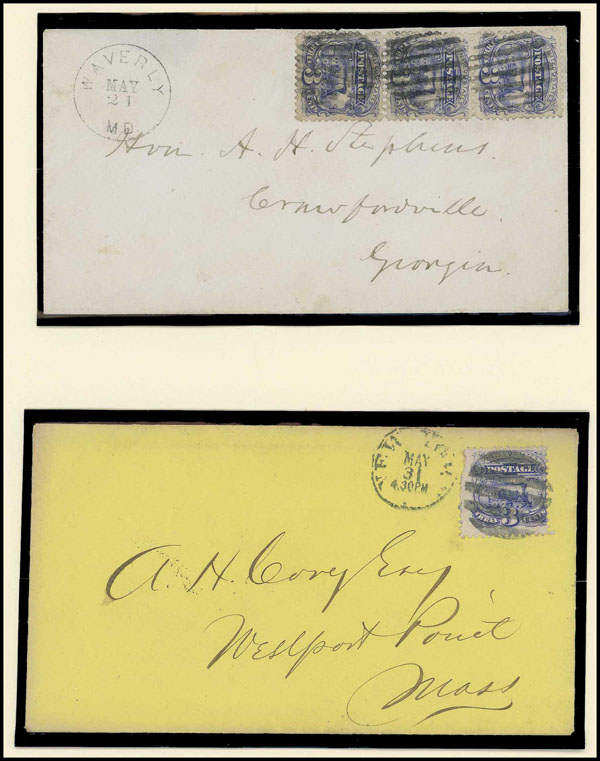 WAVERLY
MAY
21
MD.
3 POSTAGE
3 POSTAGE
3 POSTAGE
Hon. A. H. Stephens.
Crawfordville.
Georgia.
NEW YORK
MAY
31
4.30PM
POSTAGE
THREE 3 CENTS
A. H. Cory Esq
Westport Point
Mass